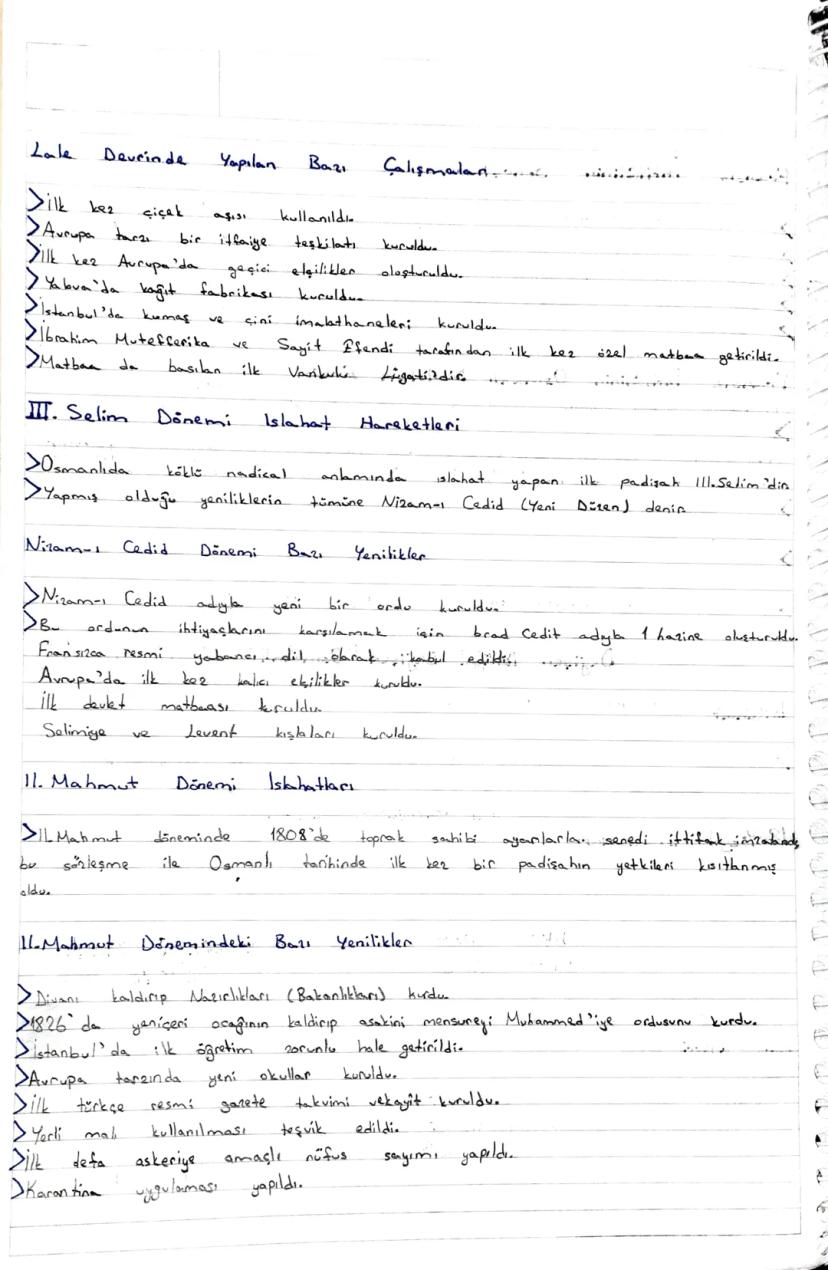 Lale Devrinde Yapılan Bazı Çalışmaları
>İlk kez çiçek aşısı kullanıldı.
>Avrupa tarzı bir itfaiye teşkilatı kuruldu.
>İlk kez Avrupa'da geçici elçilikler oluşturuldu.
>Yalova'da kağıt fabrikası kuruldu.
>İstanbul'da kumaş ve çini imalathaneleri kuruldu.
>İbrahim Muteferrika ve Sayit Efendi tarafından ilk kez özel matbaa getirildi.
>Matbaa da basılan ilk Vankulu Lügati'dir.
III. Selim Dönemi Islahat Hareketleri
>Osmanlıda köklü radical anlamında ıslahat yapan ilk padişah III.Selim'dir
>Yapmış olduğu yeniliklerin tümüne Nizam-ı Cedid (Yeni Düzen) denir
Nizam-ı Cedid Dönemi Bazı Yenilikler
>Nizam-ı Cedid adıyla yeni bir ordu kuruldu.
>Bu ordunun ihtiyaçlarını karşılamak için brad Cedit adıyla 1 hazine oluşturuldu.
Fransızca resmi yabancı dil olarak kabul edildi.
Avrupa'da ilk kez kalıcı elçilikler kuruldu.
İlk devlet matbaası kuruldu.
Selimiye ve Levent kışlaları kuruldu.
II. Mahmut Dönemi Islahatları
>II.Mahmut döneminde 1808'de toprak sahibi ayanlarla senedi ittifak imzalandı,
bu sözleşme ile Osmanlı tarihinde ilk kez bir padişahın yetkileri kısıtlanmış
oldu.
II.Mahmut Dönemindeki Bazı Yenilikler
>Divanı kaldırıp Nazırlıkları (Bakanlıkları) kurdu.
>1826'da yeniçeri ocağının kaldırıp asakini mensureyi Muhammed'iye ordusunu kurdu.
>İstanbul'da ilk öğretim zorunlu hale getirildi.
>Avrupa tarzında yeni okullar kuruldu.
>İlk türkçe resmi gazete takvimi vekayit kuruldu.
>Yerli malı kullanılması teşvik edildi.
>İlk defa askeriye amaçlı nüfus sayımı yapıldı.
>Karantina uygulaması yapıldı.